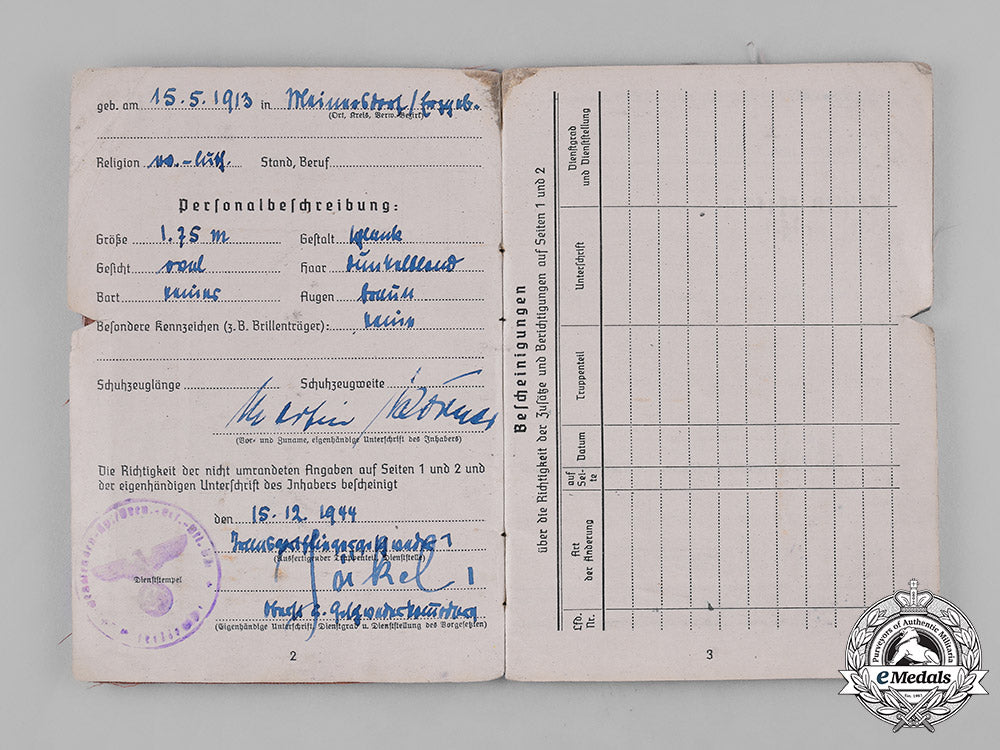 geb. am 15.5.1913 in Meinersdorf/Erzgeb.
(Ort, Kreis, Verw. Bezirk)
Religion ev.-luth. Stand, Beruf
Personalbeschreibung:
Größe 1.75 m Gestalt schlank
Gesicht oval Haar dunkelblond
Bart keiner Augen braun
Besondere Kennzeichen (z.B. Brillenträger): keine
Schuhzeuglänge Schuhzeugweite
Martin
(Vor- und Zuname, eigenhändige Unterschrift des Inhabers)
Die Richtigkeit der nicht umrandeten Angaben auf Seiten 1 und 2 und
der eigenhändigen Unterschrift des Inhabers bescheinigt
den 15.12.1944
Transportfliegergeschwader 1
(Ausfertigender Truppenteil, Dienststelle)
Dienststempel
Oberst u. Geschwaderkommodore
(Eigenhändige Unterschrift, Dienstgrad u. Dienststellung des Vorgesetzten)
2
Bescheinigungen
über die Richtigkeit der Zusätze und Berichtigungen auf Seiten 1 und 2
Lfd. Nr.
Art der Änderung
auf Sei-te
Datum
Truppenteil
Unterschrift
Dienstgrad und Dienststellung
3
Purveyors of Authentic Militaria
eMedals